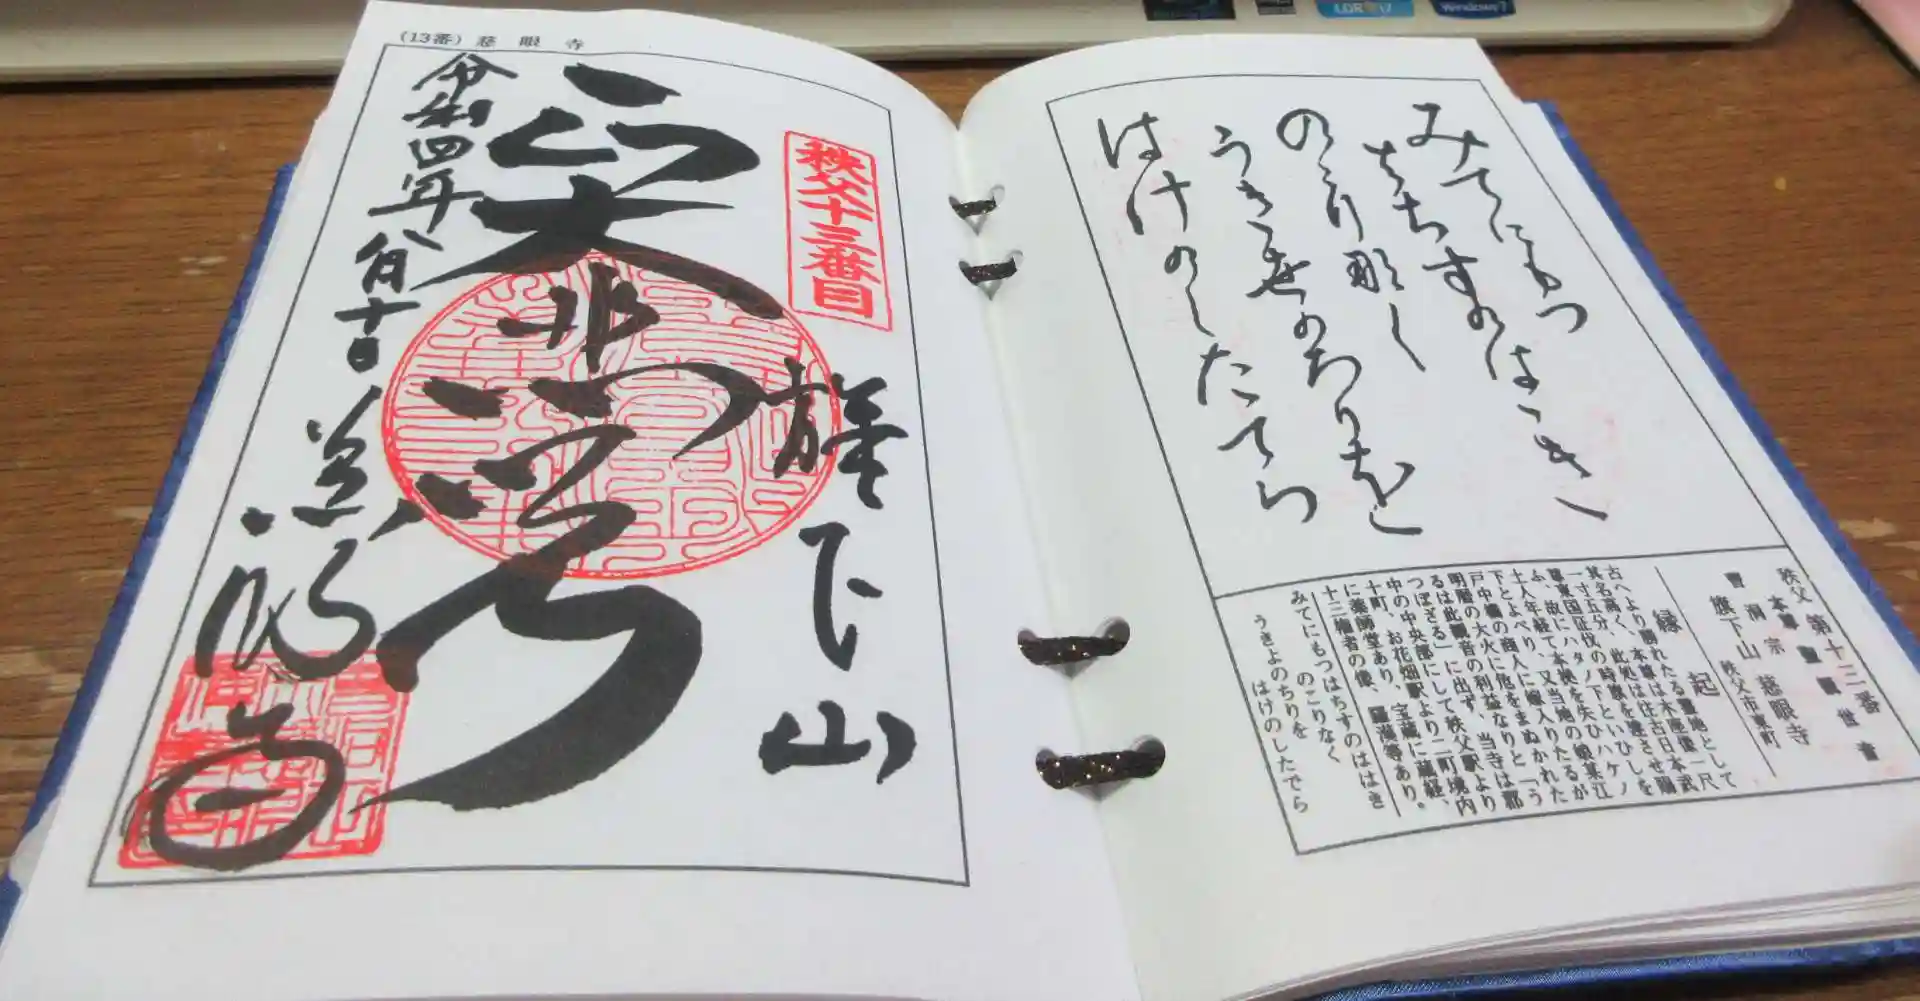 みてにもつ
はちすのはゝき
のこり那く
うきよのちりを
はけのしたてら
秩父 第十三番
本尊 聖観世音
曹洞宗 秩父市東町
旗下山 慈眼寺
縁起
古へより勝れたる霊地として
其名高く、本尊は木座像一尺
一寸五分、此処は往古日本武
尊東国征伐の時旗を建させ賜
ふ、故にハタノ下といひしを
土人年経て本拠を失ひハケノ
下とよべり、又当地の娘某江
戸中橋の商人に嫁入りたるが
明暦の大火に他をまぬかれた
るは此観音の利益なりと「う
つぼざる」に出ず、当寺は郡
中の中央部にして秩父駅より
十町、お花畑駅より二町境内
に薬師堂あり、宝蔵に蔵経、
十三権者の像、羅漢等あり。
みてにもつはちすのははき
のこりなく
うきよのちりを
はけのしたでら
(13番) 慈眼寺
秩父十三番目
旗下山
大悲
令和四年八月十
慈眼寺
Windows 7